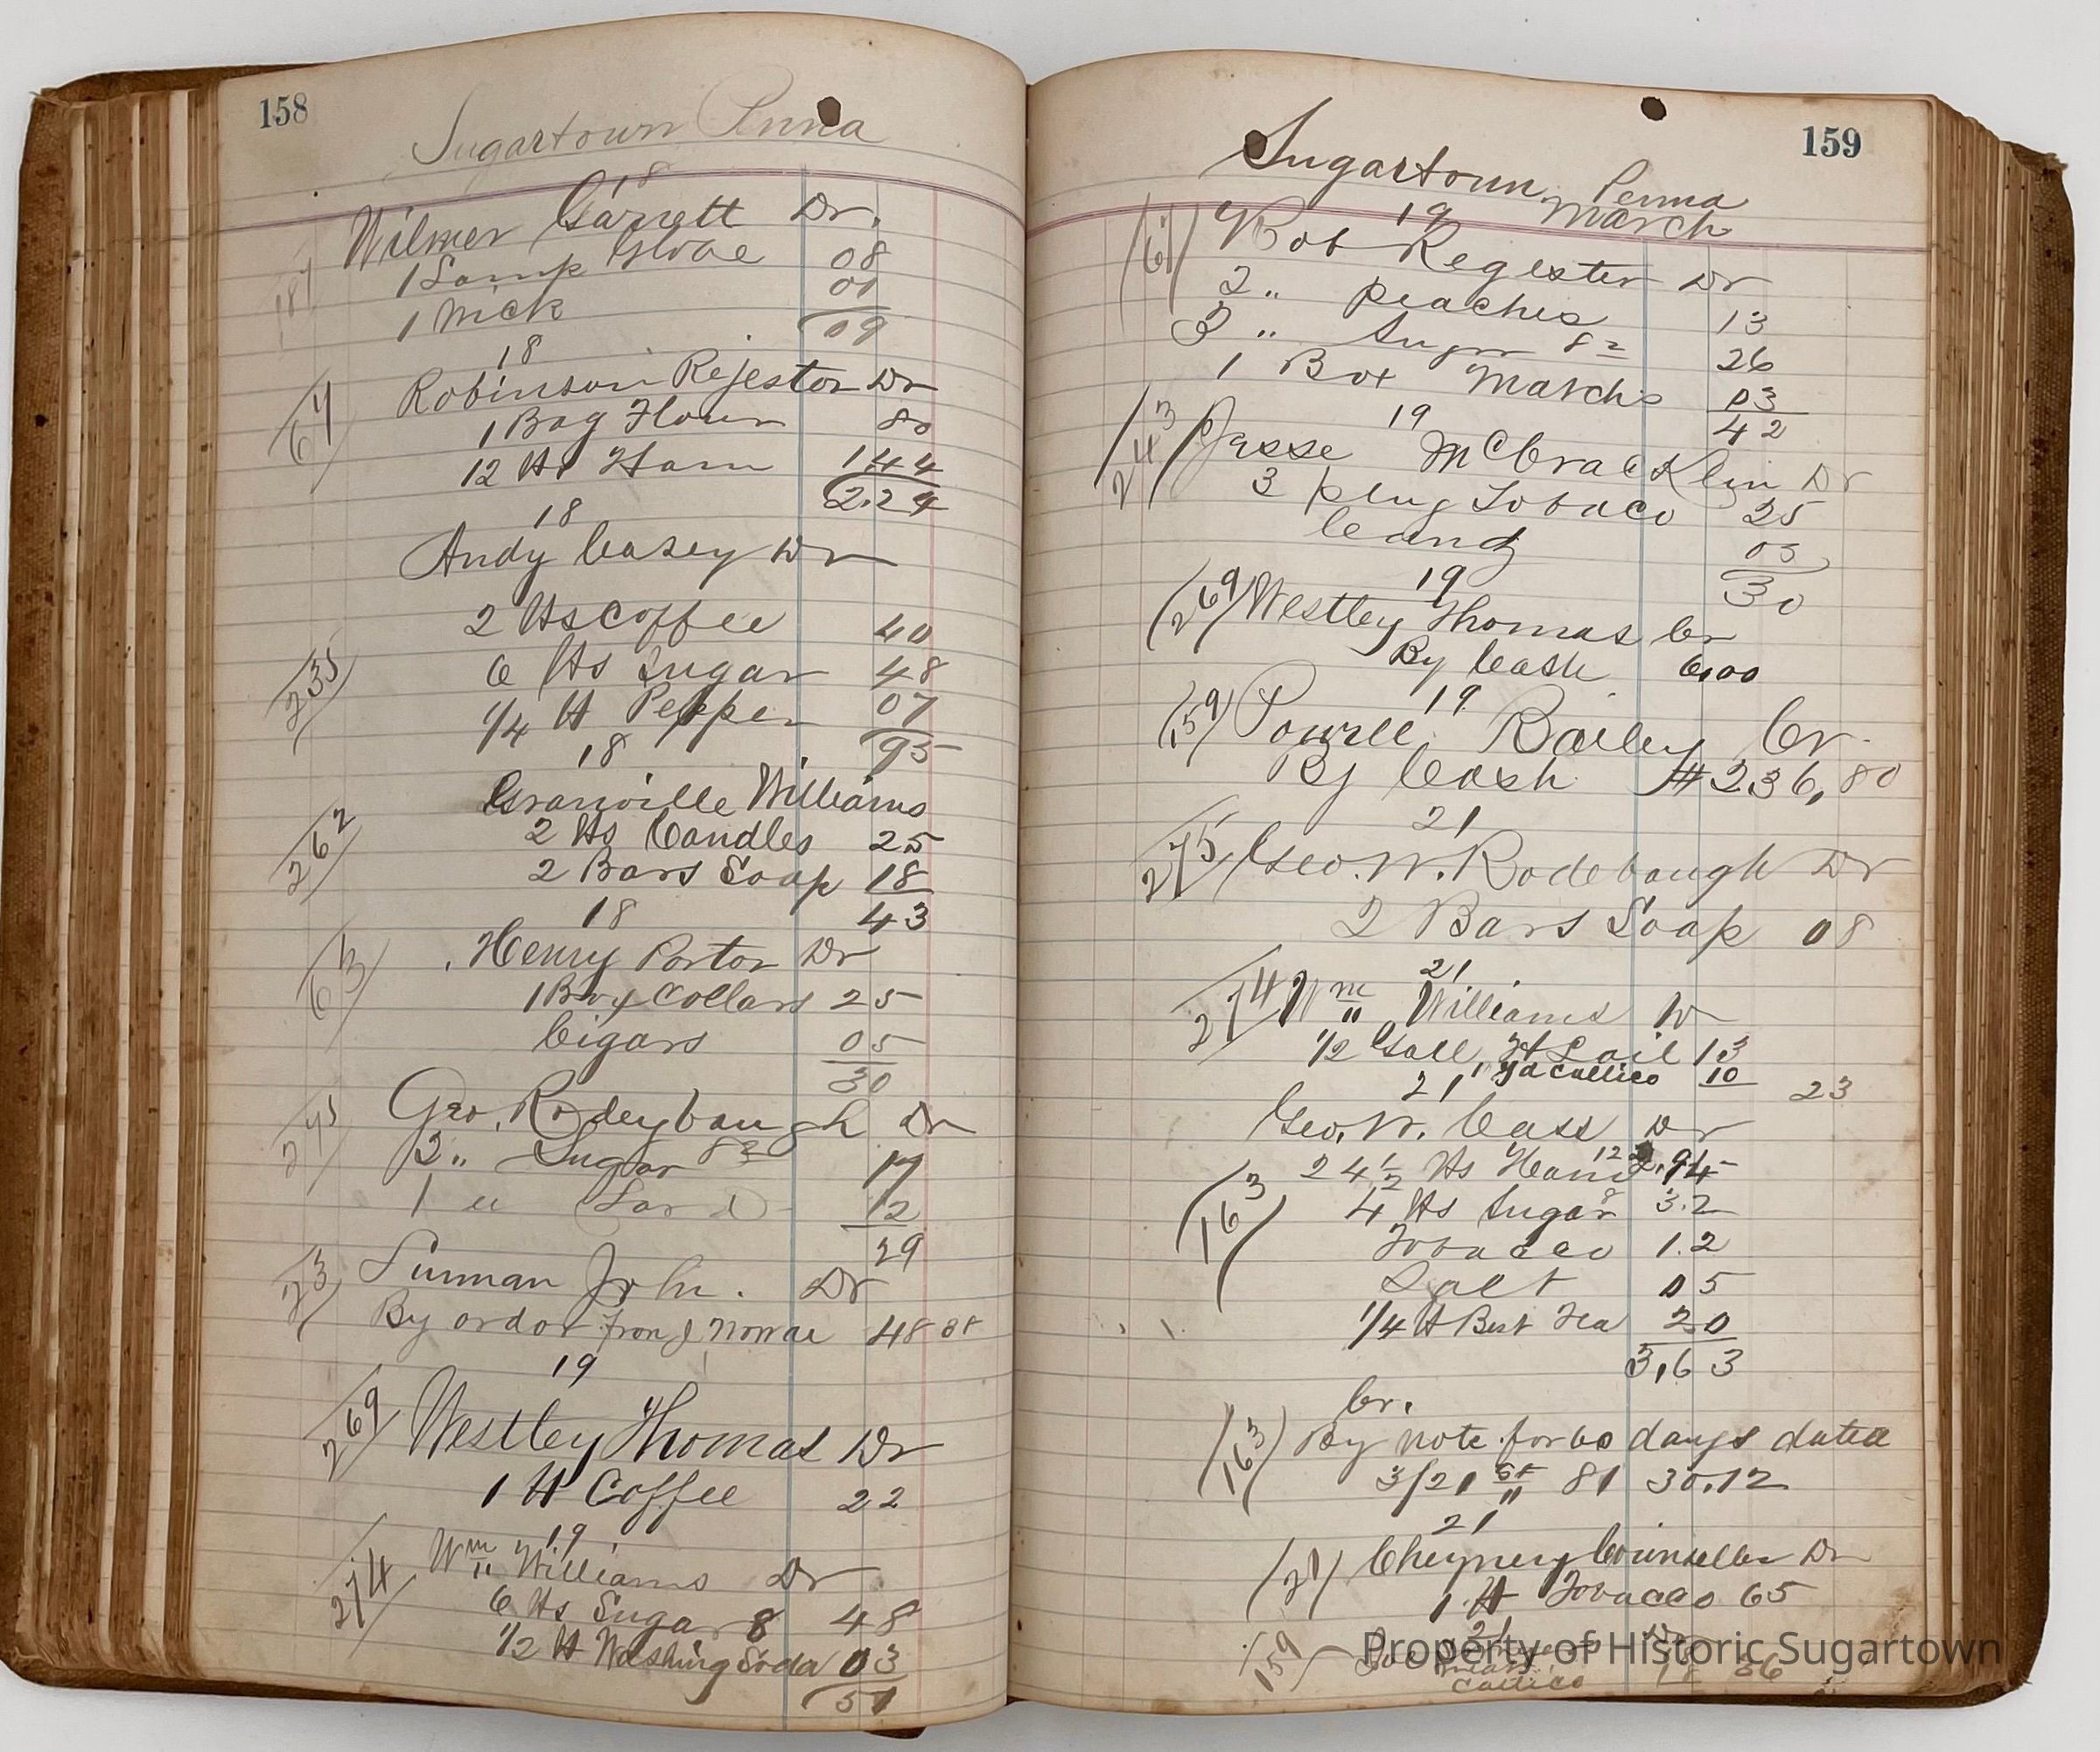 158
Sugartown Penna
18
Wilmer Garrett Dr.
187
1 Lamp Globe 08
1 Wick 01
09
18
Robinson Rejestor Dr
61
1 Bag Flour 80
12 lbs Ham 1.44
2.24
18
Andy Casey Dr
2 lbs Coffee 40
235
6 lbs Sugar 48
1/4 lb Pepper 07
18 95
Granville Williams
262
2 lbs Candles 25
2 Bars Soap 18
18 43
Henry Portor Dr
63
1 Box Collars 25
Cigars 05
30
Geo. Rodeybaugh Dr
275
2 " Sugar 8½ 17
1 " Lard 12
29
23
Surman John. Dr
By ordor from J 48
19
269
Westley Thomas Dr
1 lb Coffee 22
19
Wm Williams Dr
274
6 lbs Sugar 8 48
1/2 lb Washing Soda 03
51
159
Sugartown, Penna
19 March
61
Rob Regester Dr
2 " peaches 13
3 " Sugar 8½ 26
1 Box Match's 03
42
19
243
Jesse McCracklin Dr
3 plug Tobaco 25
Candy 05
30
19
269
Westley Thomas Cr
By Cash 6,00
19
159
Powell Bailey Cr.
By Cash #236,80
21
275
Geo. W. Rodebough Dr
2 Bars Soap 08
21
274
Wm Williams Dr
1/2 Gall H L oil 13
1 yd callico 10 23
21
Geo. W. Cass Dr
24½ lbs Ham 12 2.94
163
4 lbs Sugar 8 3.2
Tobacco 1.2
Salt 05
1/4 lb Best Tea 20
3,63
Cr.
163
By note for 60 days dated
3/21st 81 30.12
21
21
Cheyney Counseller Dr
1 lb Tobacco 65
21
159
Dr
callico 18 36
Property of Historic Sugartown